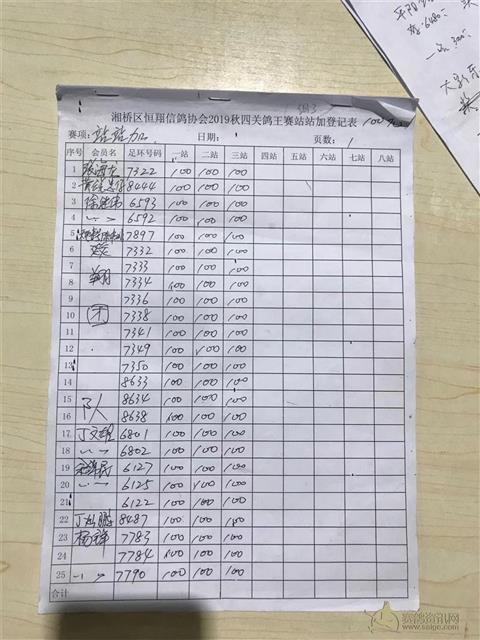 湘桥区恒翔信鸽协会2019秋四关鸽王赛站站加登记表 100元
赛项: 站站加 日期: 页数: 1
序号 会员名 足环号码 一站 二站 三站 四站 五站 六站 七站 八站
1 7322 100 100 100
2 8444 100 100 100
3 6593 100 100 100
4 〃 6592 100 100 100
5 7897 100 100 100
6 7332 100 100 100
7 7333 100 100 100
8 翔 7334 100 100 100
9 7336 100 100 100
10 团 7338 100 100 100
11 7341 100 100 100
12 7349 100 100 100
13 7350 100 100 100
14 8633 100 100 100
15 队 8634 100 100 100
16 8638 100 100 100
17 丁文雄 6801 100 100 100
18 〃 6802 100 100 100
19 6127 100 100 100
20 〃 6125 100 100 100
21 6122 100 100 100
22 丁 鹏 8487 100 100 100
23 杨锋 7783 100 100 100
24 7784 100 100 100
25 〃 7790 100 100 100
合计
赛鸽资讯网
www.saige.com